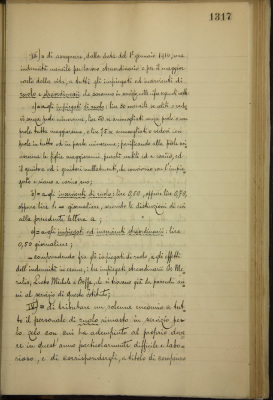 1317
III) = di assegnare, dalla data del 1° gennaio 1918, una
indennità mensile per lavoro straordinario e per il maggior
costo della vita, a tutti gli impiegati ed inservienti di
ruolo e straordinari che saranno in servizio, nelle seguenti
a) = agli impiegati di ruolo: lire 50 mensili se celibi o vedovi
senza prole minorenne, lire 60 se ammogliati senza prole o con
prole tutta maggiorenne, e lire 75 se ammogliati o vedovi con
prole in tutto od in parte minorenne; parificando alla prole mi
norenne le figlie maggiorenni purché nubili ed a carico, ed
il genitore ed i genitori nullatenenti, che convivono con l'impie
gato a carico;
b) = agli inservienti di ruolo: lire 0,50, oppure lire 0,70,
oppure lire 1.= giornaliere, secondo le distinzioni di cui
alla precedente lettera a;
c) = agli impiegati ed inservienti straordinari: lire
0,50 giornaliere;
= comprendendo fra gli impiegati di ruolo, e gli effetti
dell'indennità in esame, i tre impiegati straordinari
e Boffa, che si trovano già da parecchi an
ni al servizio di questo istituto;
IV) = di tributare un solenne encomio a tut
to il personale di ruolo rimasto in servizio per
lo zelo con cui ha adempiuto al proprio dove
re in quest'anno particolarmente difficile e labo
rioso, e di corrispondergli, a titolo di compenso